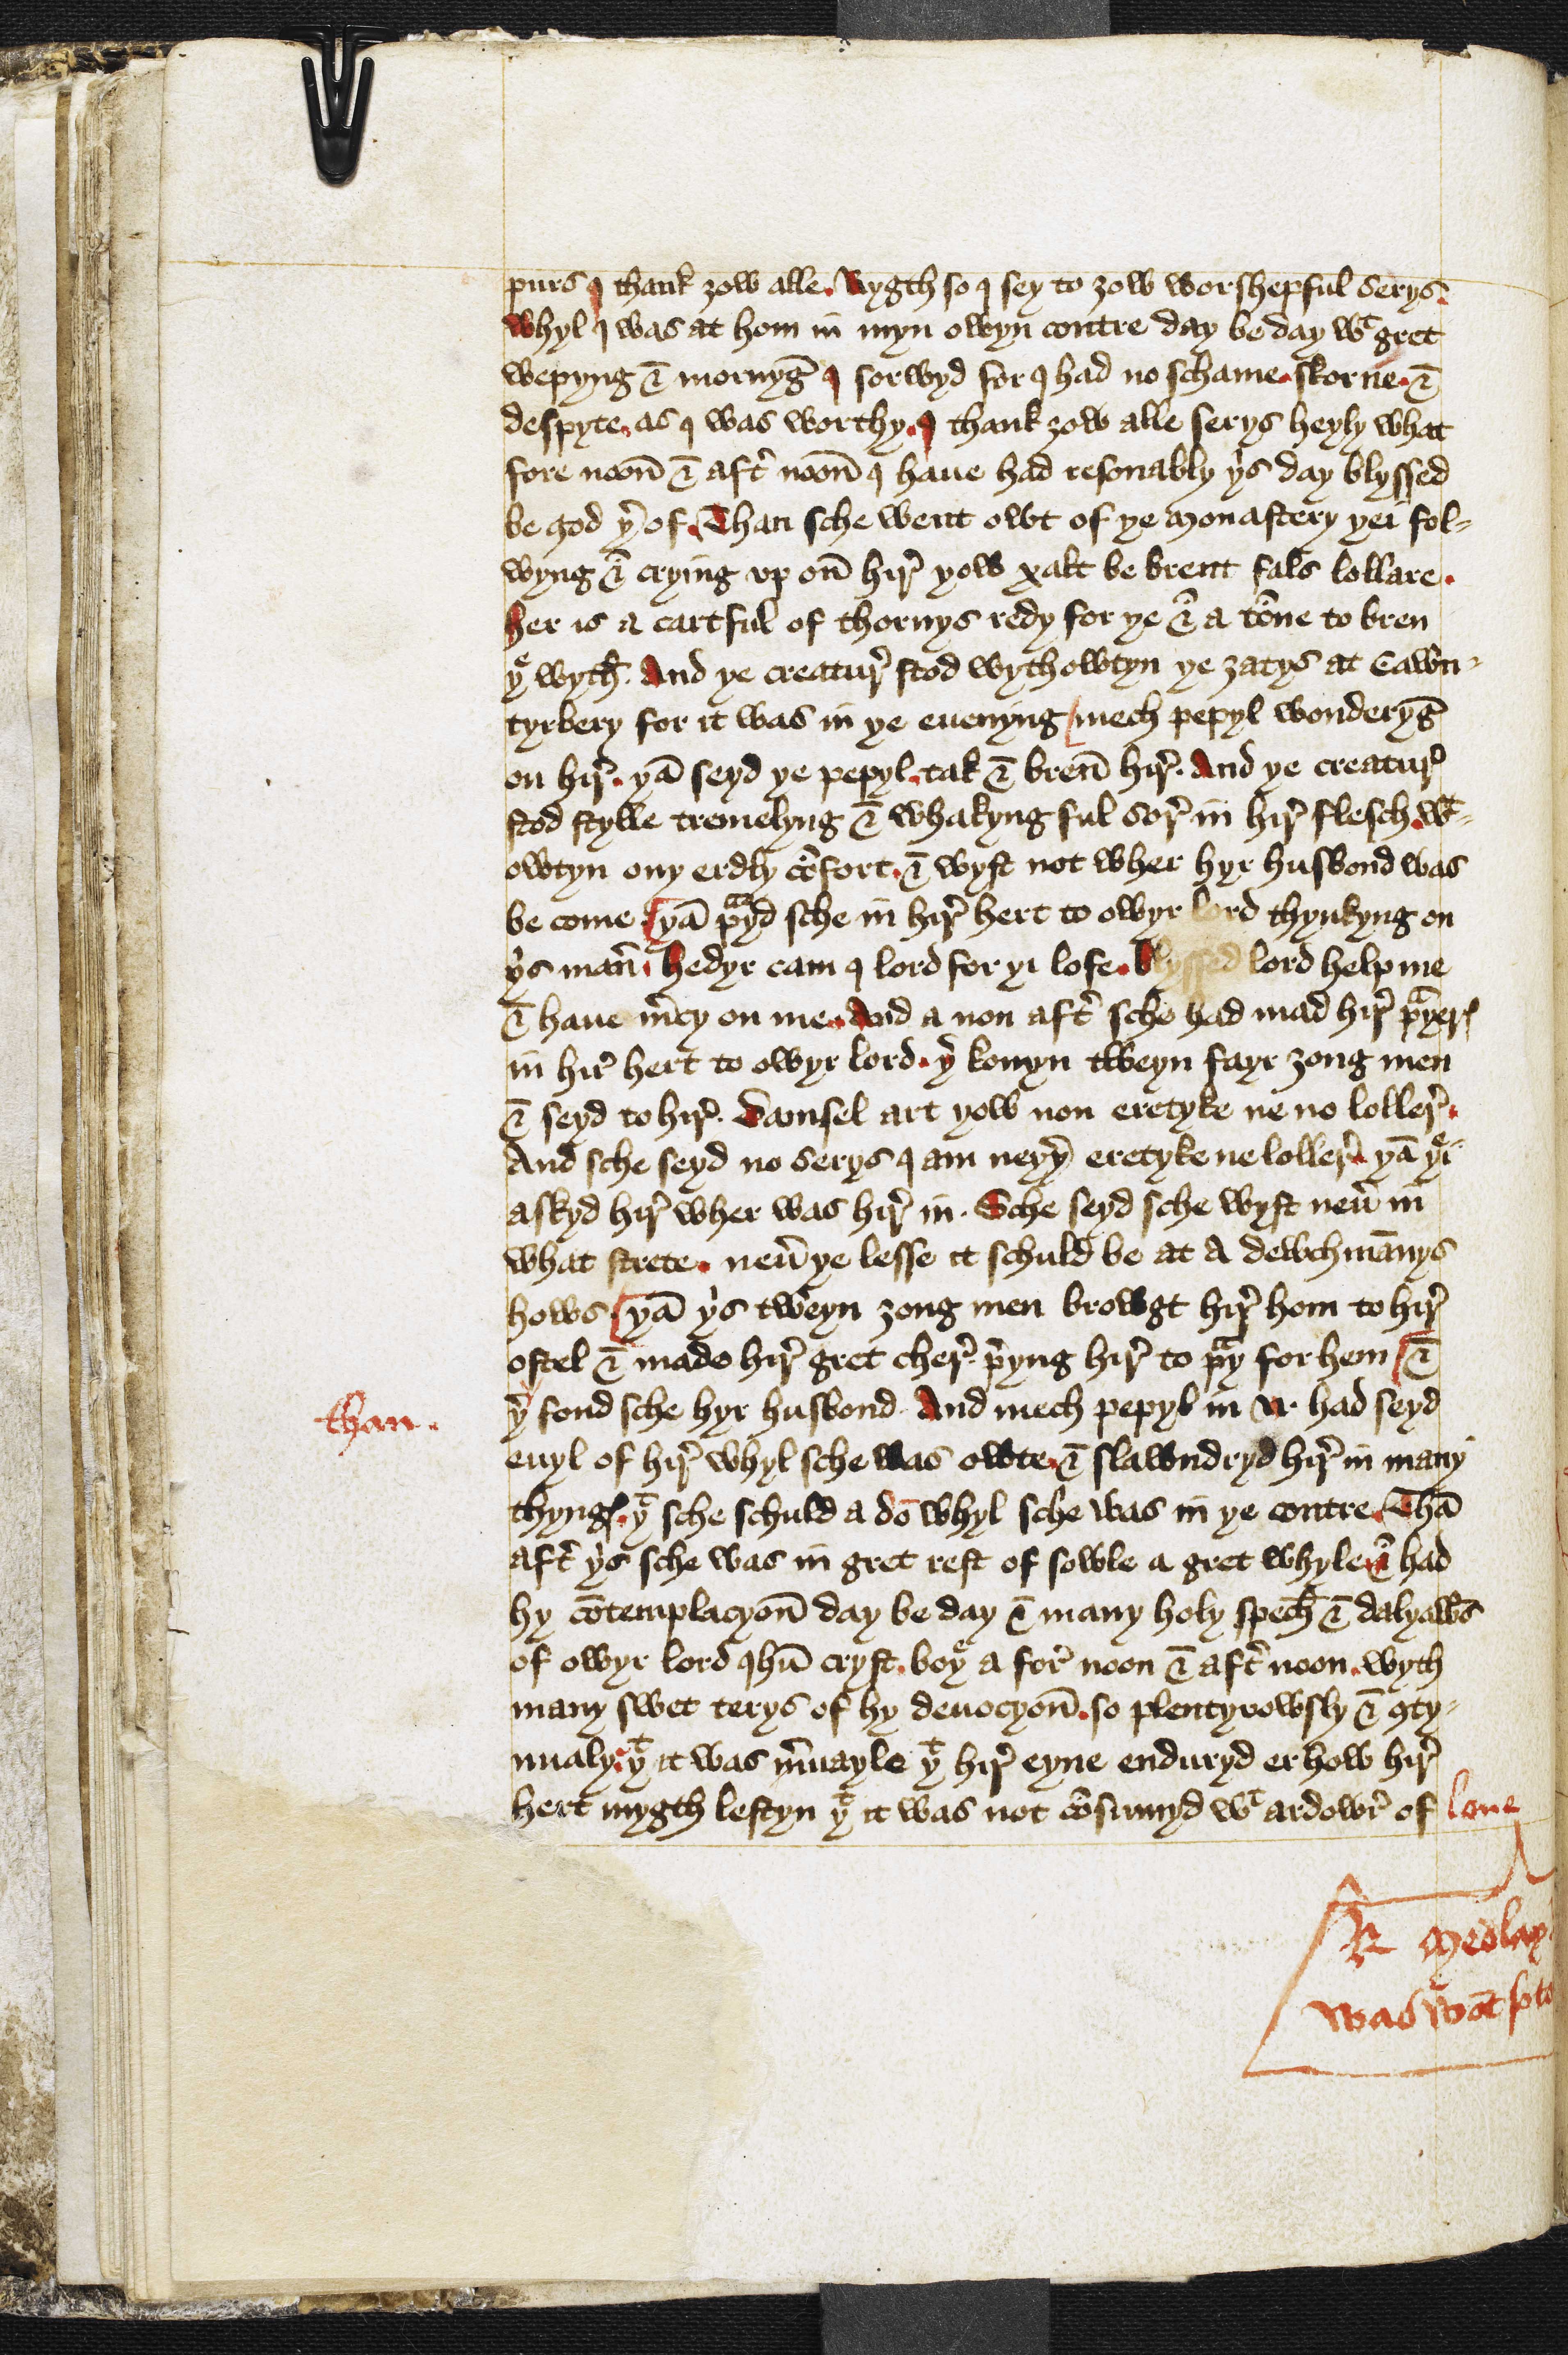 purs I thank zow alle. Rygth so I sey to zow worshepful serys.
Whyl I was at hom in myn owyn contre day be day wt gret
wepyng & mornyg̃ I sorwyd for I had no schame. skorne. &
despyte. as I was worthy. I thank zow alle serys heyly what
fore noon̄ & aft̉ noon̄ I haue had resonably ẏs day blyssed
be god ẏ of. Than sche went owt of ye Monastery yei fol-
wyng & crying vp on̄ hir̉ yow xalt be brent fals lollare.
her is a cartful of thornys redy for ye & a tōne to bren
ye wyth. And ye creatur̉ stod wythowtyn ye zatys at Cawn-
tyrbery for it was in ye euenyng mech pepyl wonderyg̃
on hir̉. yā seyd ye pepyl. tak & bren̄ hir̉. And ye creatur̉
stod stylle tremelyng & whakyng ful sor̉ in hir̉ flesch wt-
owtyn ony erdly cōfort. & wyst not wher hyr husbond was
be come. yā pᵃyd sche in hir̉ hert to owyr lord thynkyng on
ẏs man̄. hedyr cam I lord for yi lofe. Blyssed lord help me
& haue m̄cy on me. And a non aft̉ sche had mad hir̉ pᵃyerꝭ
in hir̉ hert to owyr lord. ẏ komyn tweyn fayr zong men
& seyd to hir̉. Damsel art yow non eretyke ne no loller̉.
And sche seyd no serys I am neyẏ eretyke ne loller̉. yā yei
askyd hir̉ wher was hir̉ in. Sche seyd sche wyst neũ in
what strete. neũ ye lesse it schuld be at a dewchmānys
hows. yā ẏs tweyn zong men browgt hir̉ hom to hir̉
ostel & made hir̉ gret cher̉. p̄yng hir̉ to pᵃy for hem &
ẏ fond sche hyr husbond. And mech pepyl in N. had seyd
than.
euyl of hir̉ whyl sche was owte. & slawndryd hir̉ in many
thyngꝭ. yt sche schuld a dō whyl sche was in ye contre. Thā
aft̉ ẏs sche was in gret rest of sowle a gret whyle & had
hy cōtemplacyon̄ day be day & many holy spech & dalyawns
of owyr lord Ihū cryst. boye a for̉ noon & aft̉ noon. wyth
many swet terys of hy deuocyon̄. so plentyvowsly & ꝯty-
nualy. yt it was m̄uayle yt hir̉ eyne enduryd er how hir̉
hert mygth lestyn yt it was not cōsumyd wt ardowr̉ of loue
R Medlay
was wōt so to